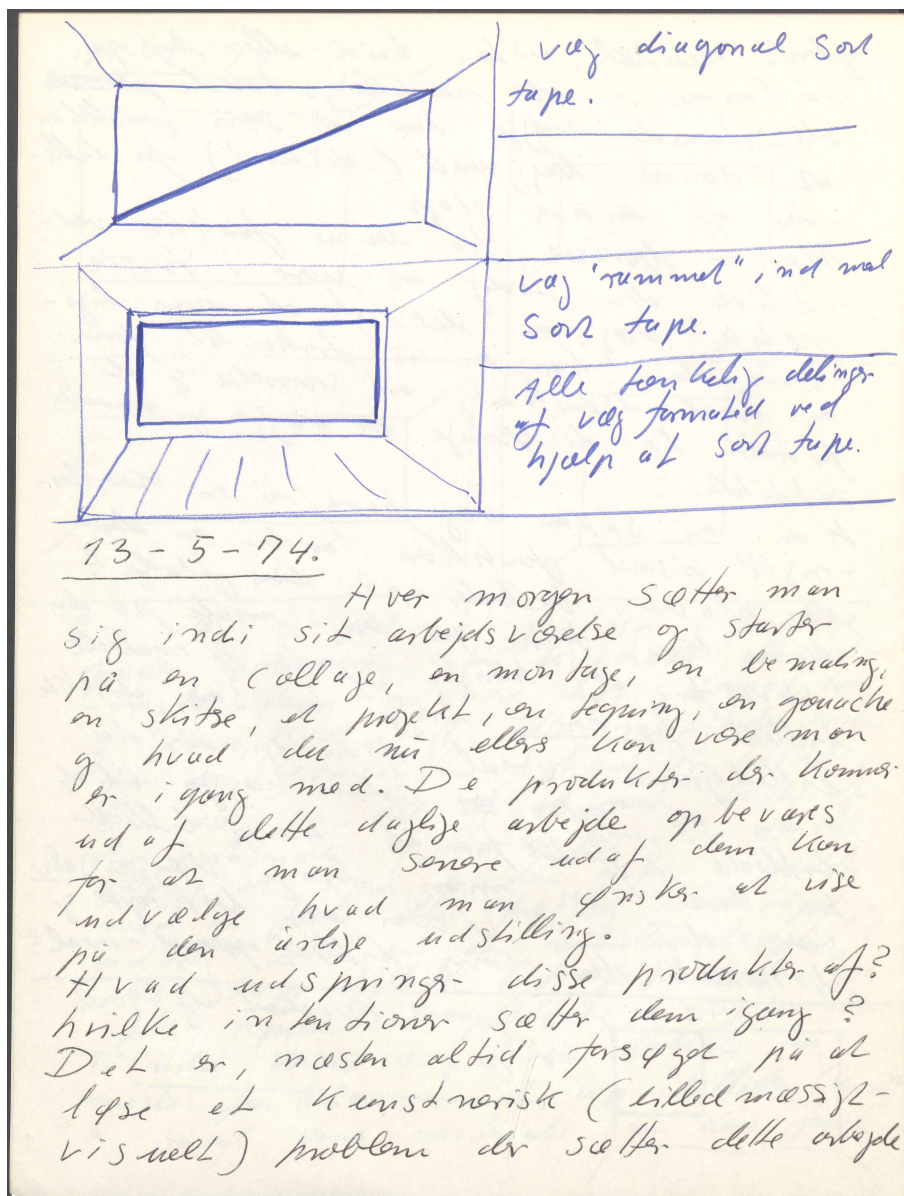 væg diagonal sort
tape.
væg "rammet" ind med
sort tape.
Alle tænkelig delinger
af væg formatid ved
hjælp af sort tape.
13-5-74.
Hver morgen sætter man
sig indi sit arbejdsværelse og starter
på en collage, en montage, en bemaling,
en skitse, et projekt, en tegning, en gouache
og hvad det nu ellers kan være man
er igang med. De produkter der kommer
ud af dette daglige arbejde opbevares
for at man senere udaf dem kan
udvælge hvad man ønsker at vise
på den årlige udstilling.
Hvad udspringer disse produkter af?
hvilke intentioner sætter dem igang?
Det er, næsten altid forsøget på at
løse et kunstnerisk (billedmæssigt-
visuelt) problem der sætter dette arbejde